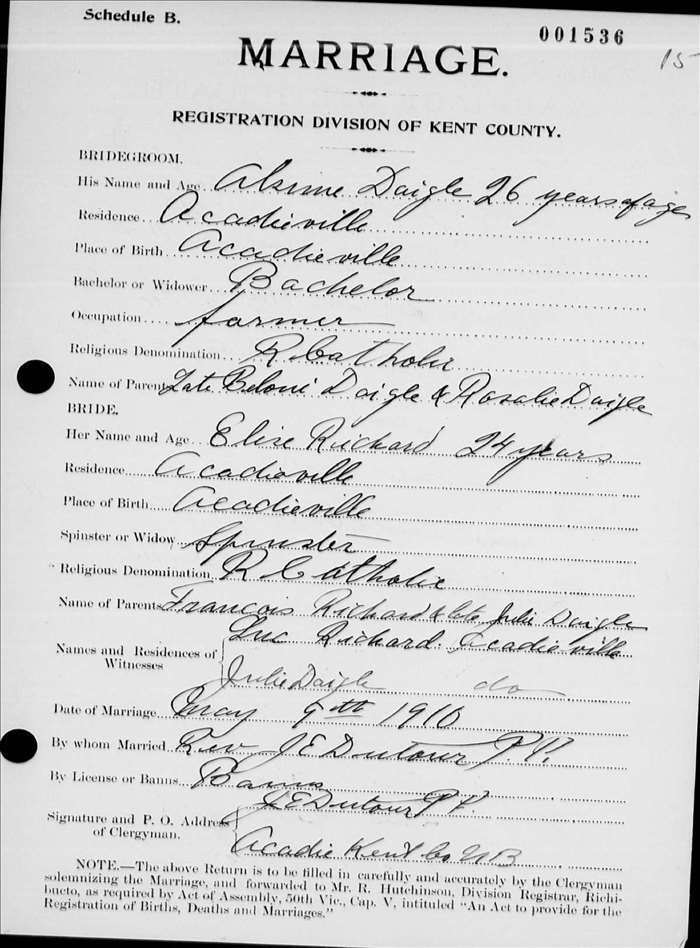 Schedule B.
001536
15
MARRIAGE.
REGISTRATION DIVISION OF KENT COUNTY.
BRIDEGROOM.
His Name and Age Daigle 26 years of age
Residence Acadieville
Place of Birth Acadieville
Bachelor or Widower Bachelor
Occupation farmer
Religious Denomination R Catholic
Name of Parents Late Beloni Daigle & Rosalie Daigle
BRIDE.
Her Name and Age Elise Richard 24 years
Residence Acadieville
Place of Birth Acadieville
Spinster or Widow Spinster
Religious Denomination R Catholic
Name of Parents Francois Richard & late Julie Daigle
Names and Residences of Witnesses Luc Richard. Acadieville
Julie Daigle do
Date of Marriage May 9th 1910
By whom Married Rev J E Dutour P.P.
By License or Banns Banns
Signature and P. O. Address of Clergyman. J E Dutour P P.
Acadie Kent Co N B
NOTE.—The above Return is to be filled in carefully and accurately by the Clergyman
solemnizing the Marriage, and forwarded to Mr. R. Hutchinson, Division Registrar, Richi-
bucto, as required by Act of Assembly, 50th Vic., Cap. V, intituled "An Act to provide for the
Registration of Births, Deaths and Marriages."